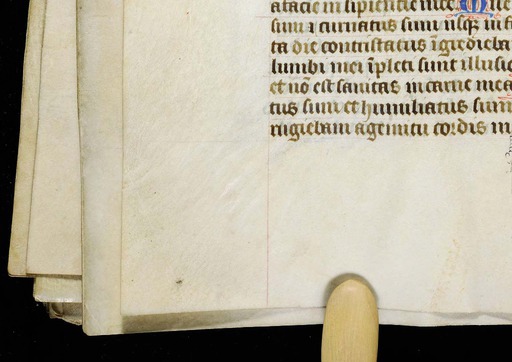 a facie insipiencie mee M
sum ⁊ curuatus sum usqꝫ in f
ta die contristatus īgredieba
lumbi mei īpleti sunt illusio
et nō est sanitas in carne mea
tus sum et humiliatus sum
rugiebam a gemitu cordis m